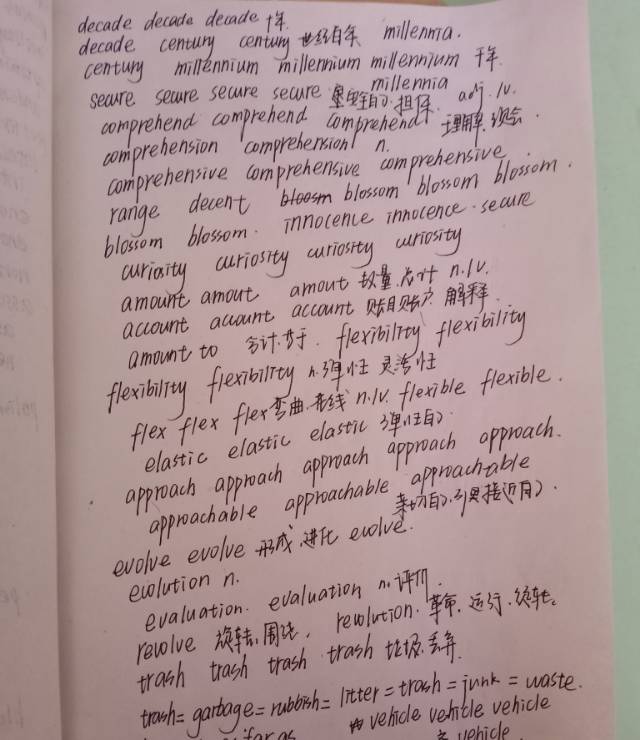 decade decade decade 十年.
decade century century 世纪百年 millennia.
century millennium millennium millennium 千年
secure secure secure secure 担保. adj. /v. millennia
comprehend comprehend comprehend 理解.领会.
comprehension comprehension n.
comprehensive comprehensive comprehensive
range decent blossom blossom blossom.
blossom blossom. innocence innocence. secure
curiosity curiosity curiosity curiosity
amount amout amout 数量.总计 n./v.
account account account 账目账户 解释.
amount to 合计.等于. flexibility flexibility
flexibility flexibility n.弹性 灵活性
flex flex flex 弯曲. n./v. flexible flexible.
elastic elastic elastic 弹性的.
approach approach approach approach approach.
approachable approachable approachable
亲切的.可接近的.
evolve evolve 形成.进化 evolve.
evolution n.
evaluation. evaluation n.评价.
revolve 旋转.围绕. revolution. 革命.运行.旋转.
trash trash trash trash 垃圾.丢弃.
trash= garbage= rubbish= litter = trash = junk = waste.
vehicle vehicle vehicle
far as vehicle